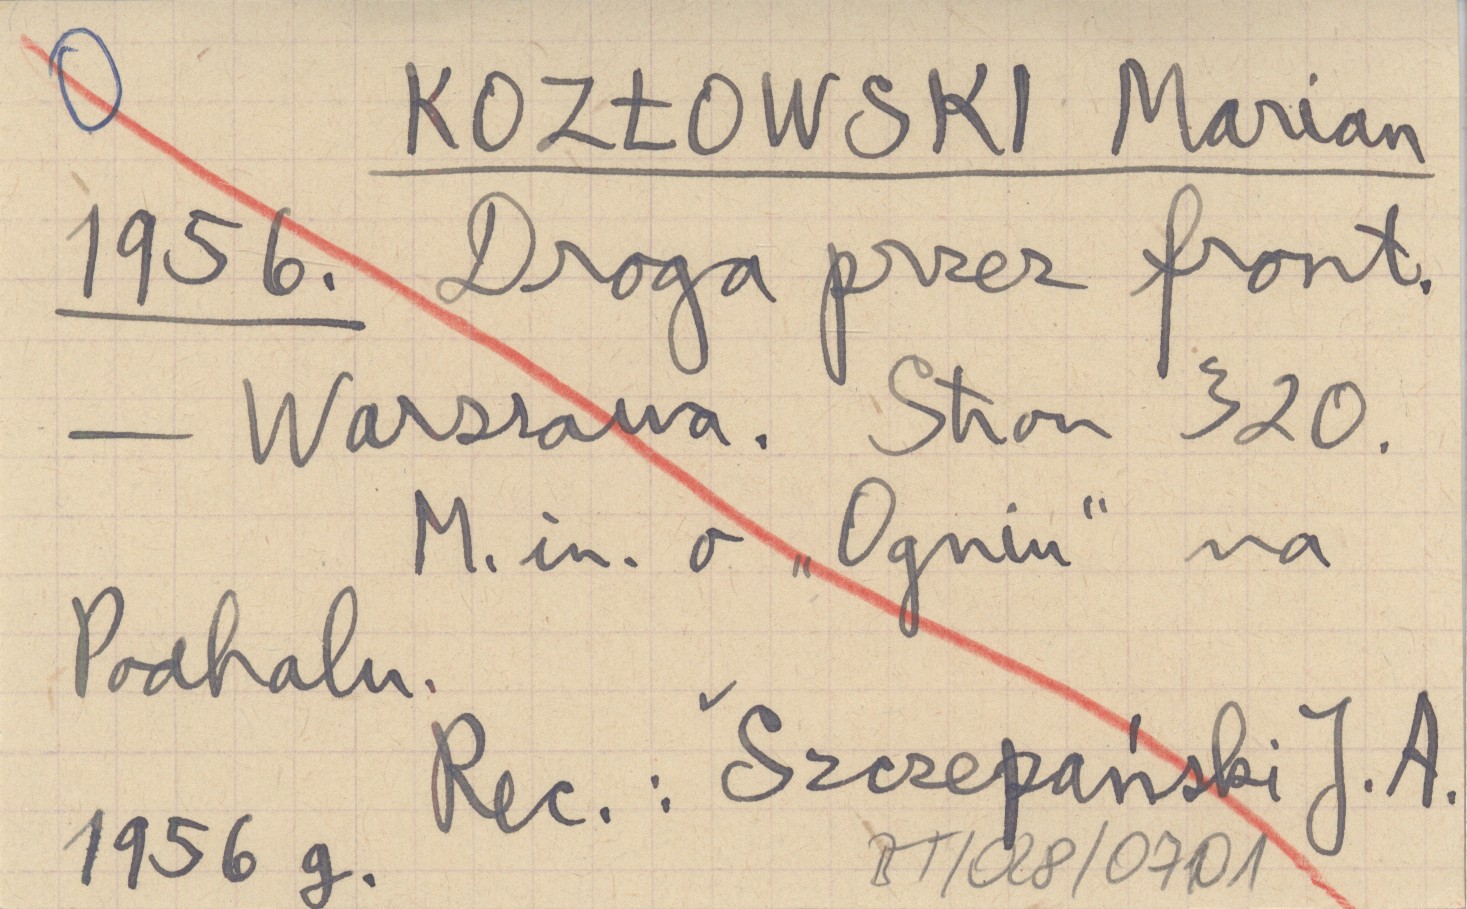 KOZŁOWSKI Marian
1956. Droga przez front.
— Warszawa. Stron 320.
M. in. o „Ogniu“ na
Podhalu.
Rec.: Szczepański J. A.
1956 g.